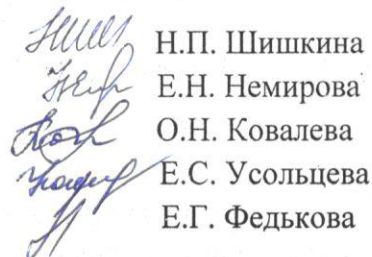 Н.П. Шишкина
Е.Н. Немирова
О.Н. Ковалева
Е.С. Усольцева
Е.Г. Федькова